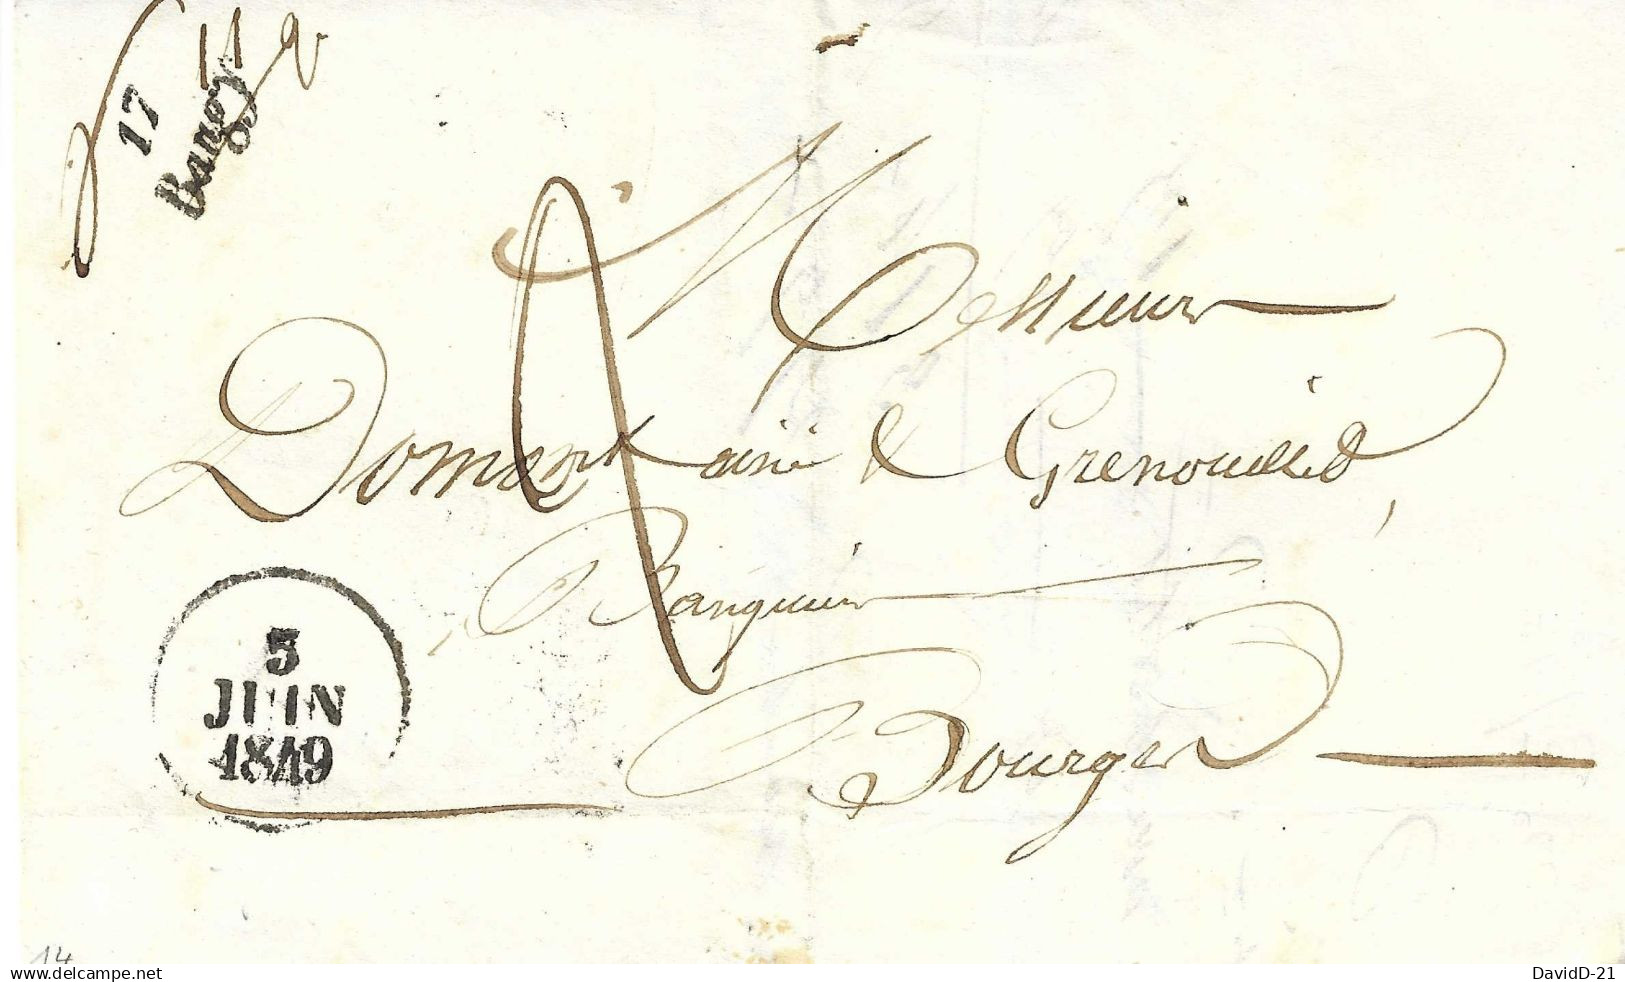 17
Baugy
Messieurs
Domont ainé & Grenouillet
Banquiers
Bourges
5
JUIN
1849
14
delcampe.net
DavidD-21